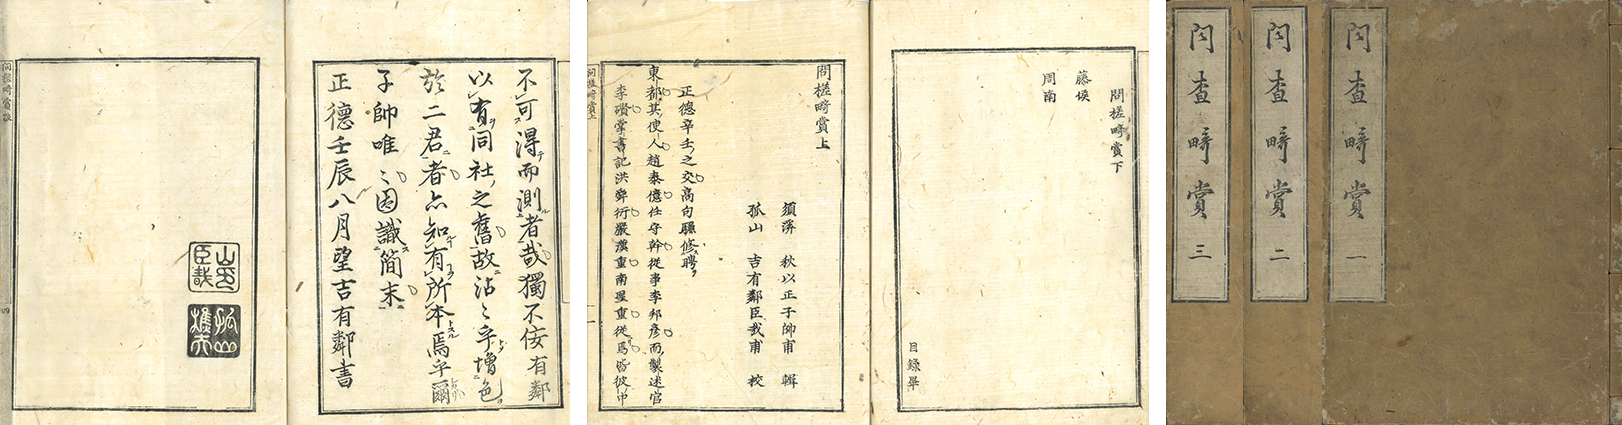 不可得而測者哉獨不佞有鄰
以有同社之舊故沾〻乎增色
於二君者亦知有所本焉乎爾
子帥唯〻因識簡末
正德壬辰八月望吉有鄰書
問槎畸賞下
藤侯
周南
目錄畢
問槎畸賞上
須溪 秋以正子帥甫 輯
孤山 吉有鄰臣哉甫 校
正德辛壬之交高句驪修聘
東都其使人趙泰億任守幹從事李邦彥而製述官
李礥掌書記洪舜衍嚴漢重南聖重從焉皆彼中
问查畸賞 一
问查畸賞 二
问查畸賞 三